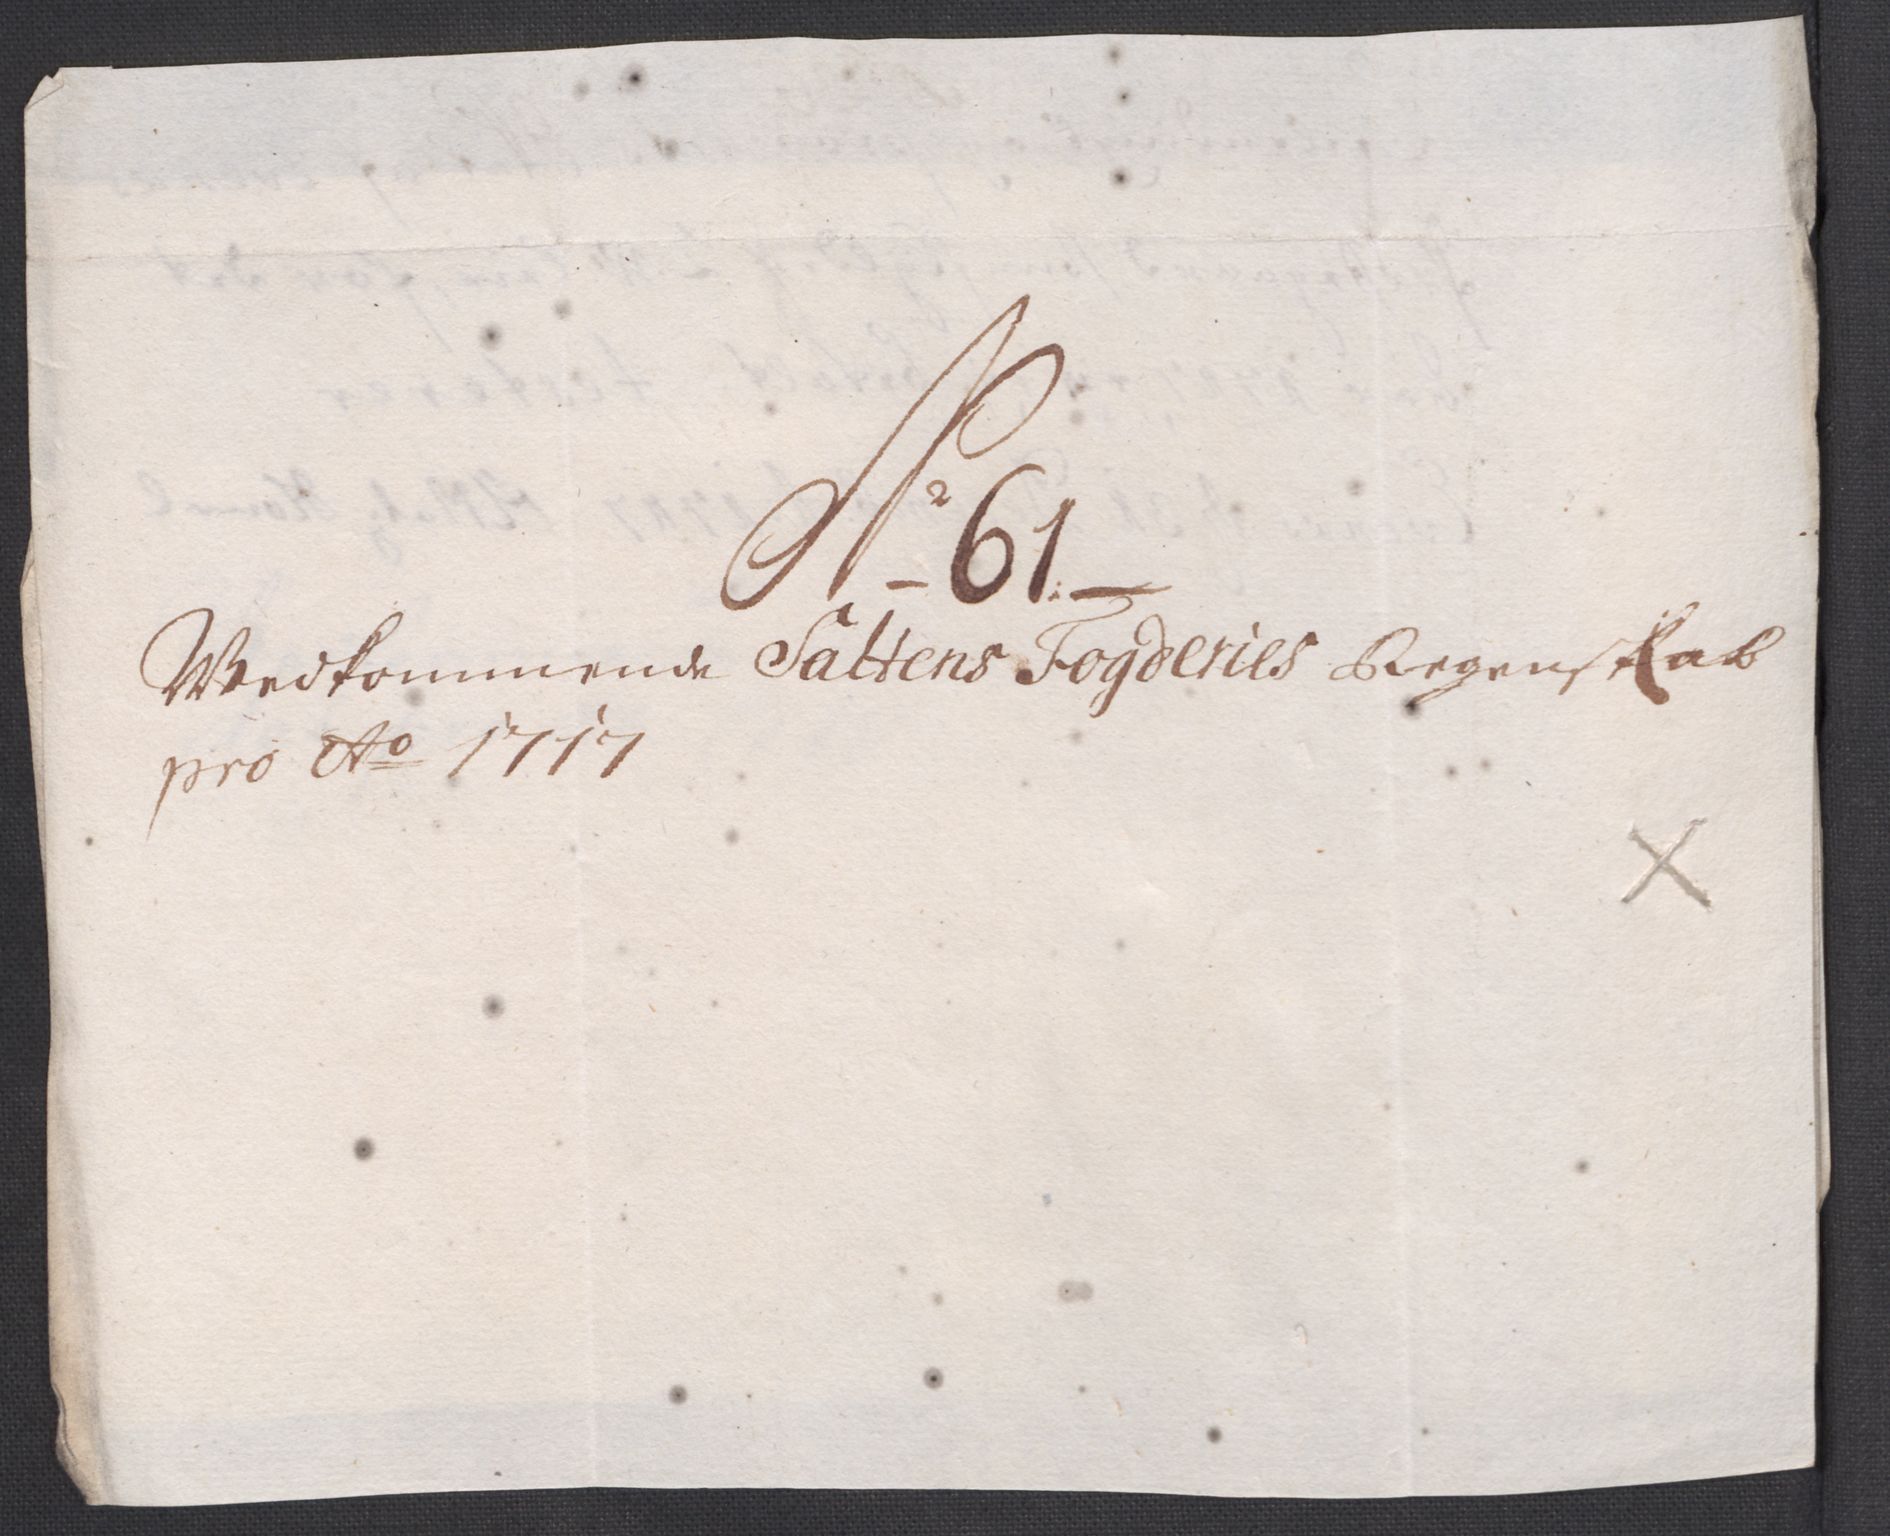 No 61.
Wedkommende Saltens Fogderies Regenskab
pro Ao 1717